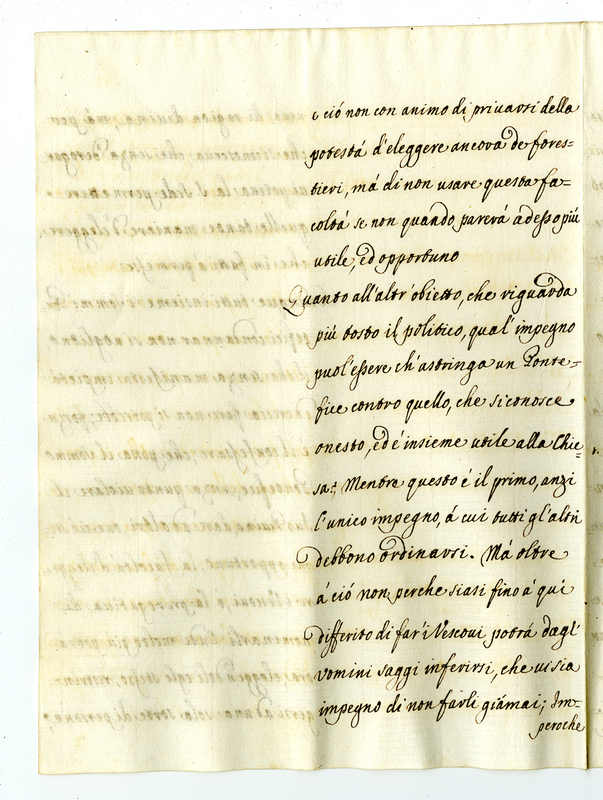 e ció non con animo di privarsi della
potestá d'eleggere ancora de fores=
tieri, má di non usare questa fa=
coltá se non quando parerá adesso piú
utile, ed opportuno
Quanto all'altr'obietto, che riguarda
piú tosto il politico, qual'impegno
puol'essere ch'astringa un Ponte=
fice contro quello, che si conosce
onesto, ed é insieme utile alla Chie=
sa? Mentre questo é il primo, anzi
l'unico impegno, á cui tutti gl'altri
debbono ordinarsi. Má oltre
á ció non perche siasi fino á qui
differito di far'i Vescovi potrá dagl'
vomini saggi inferirsi, che vi sia
impegno di non farli giámai; Im=
peroche